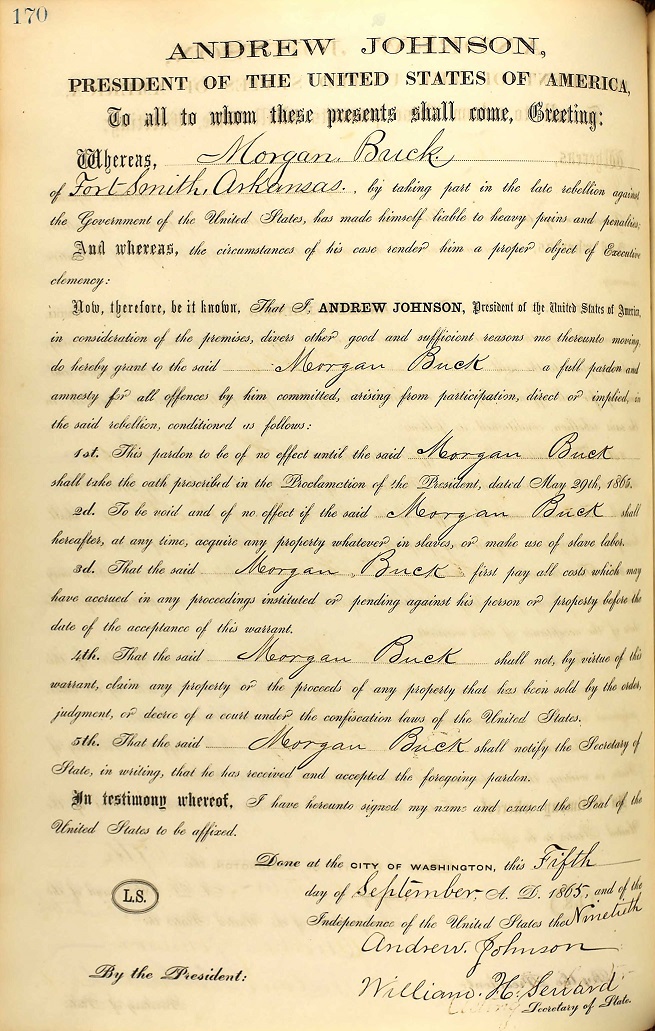 170
ANDREW JOHNSON,
PRESIDENT OF THE UNITED STATES OF AMERICA,
To all to whom these presents shall come, Greeting:
Whereas, Morgan Buck
of Fort Smith, Arkansas., by taking part in the late rebellion against
the Government of the United States, has made himself liable to heavy pains and penalties;
And whereas, the circumstances of his case render him a proper object of Executive
clemency:
Now, therefore, be it known, That I, ANDREW JOHNSON, President of the United States of America,
in consideration of the premises, divers other good and sufficient reasons me thereunto moving,
do hereby grant to the said Morgan Buck a full pardon and
amnesty for all offences by him committed, arising from participation, direct or implied, in
the said rebellion, conditioned as follows:
1st. This pardon to be of no effect until the said Morgan Buck
shall take the oath prescribed in the Proclamation of the President, dated May 29th, 1865.
2d. To be void and of no effect if the said Morgan Buck shall
hereafter, at any time, acquire any property whatever in slaves, or make use of slave labor.
3d. That the said Morgan Buck first pay all costs which may
have accrued in any proceedings instituted or pending against his person or property before the
date of the acceptance of this warrant.
4th. That the said Morgan Buck shall not, by virtue of this
warrant, claim any property or the proceeds of any property that has been sold by the order,
judgment, or decree of a court under the confiscation laws of the United States.
5th. That the said Morgan Buck shall notify the Secretary of
State, in writing, that he has received and accepted the foregoing pardon.
In testimony whereof, I have hereunto signed my name and caused the Seal of the
United States to be affixed.
Done at the CITY OF WASHINGTON, this Fifth
day of September, A. D. 1865, and of the
L.S.
Independence of the United States the Ninetieth
Andrew Johnson
By the President:
William H. Seward
Secretary of State.